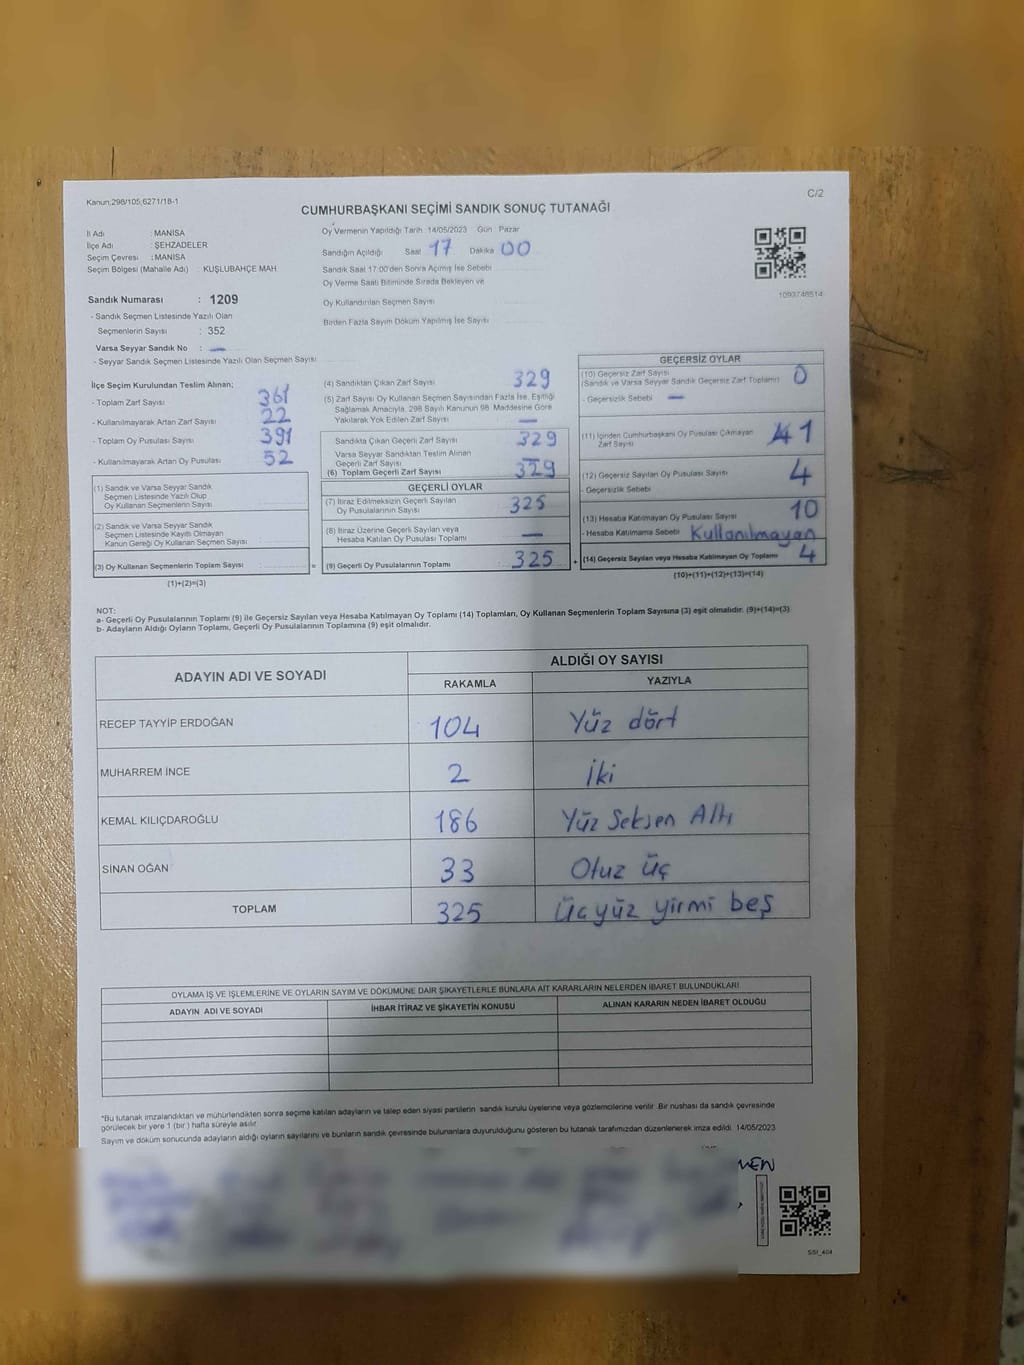 Kanun;298/105;6271/18-1
C/2
CUMHURBAŞKANI SEÇİMİ SANDIK SONUÇ TUTANAĞI
İl Adı : MANİSA
İlçe Adı : ŞEHZADELER
Seçim Çevresi : MANİSA
Seçim Bölgesi (Mahalle Adı) : KUŞLUBAHÇE MAH
Sandık Numarası : 1209
- Sandık Seçmen Listesinde Yazılı Olan
Seçmenlerin Sayısı : 352
Varsa Seyyar Sandık No : —
- Seyyar Sandık Seçmen Listesinde Yazılı Olan Seçmen Sayısı
Oy Vermenin Yapıldığı Tarih 14/05/2023 Gün Pazar
Sandığın Açıldığı Saat 17 Dakika 00
Sandık Saat 17:00'den Sonra Açılmış İse Sebebi
Oy Verme Saati Bitiminde Sırada Bekleyen ve
Oy Kullandırılan Seçmen Sayısı
Birden Fazla Sayım Döküm Yapılmış İse Sayısı
1093748514
İlçe Seçim Kurulundan Teslim Alınan;
- Toplam Zarf Sayısı 361
- Kullanılmayarak Artan Zarf Sayısı 22
- Toplam Oy Pusulası Sayısı 391
- Kullanılmayarak Artan Oy Pusulası 52
(1) Sandık ve Varsa Seyyar Sandık
Seçmen Listesinde Yazılı Olup
Oy Kullanan Seçmenlerin Sayısı
(2) Sandık ve Varsa Seyyar Sandık
Seçmen Listesinde Kayıtlı Olmayan
Kanun Gereği Oy Kullanan Seçmen Sayısı
(3) Oy Kullanan Seçmenlerin Toplam Sayısı =
(1)+(2)=(3)
(4) Sandıktan Çıkan Zarf Sayısı 329
(5) Zarf Sayısı Oy Kullanan Seçmen Sayısından Fazla İse, Eşitliği
Sağlamak Amacıyla, 298 Sayılı Kanunun 98. Maddesine Göre
Yakılarak Yok Edilen Zarf Sayısı —
Sandıkta Çıkan Geçerli Zarf Sayısı 329
Varsa Seyyar Sandıktan Teslim Alınan
Geçerli Zarf Sayısı —
(6) Toplam Geçerli Zarf Sayısı 329
GEÇERLİ OYLAR
(7) İtiraz Edilmeksizin Geçerli Sayılan
Oy Pusulalarının Sayısı 325
(8) İtiraz Üzerine Geçerli Sayılan veya
Hesaba Katılan Oy Pusulası Toplamı —
(9) Geçerli Oy Pusulalarının Toplamı 325 +
GEÇERSİZ OYLAR
(10) Geçersiz Zarf Sayısı
(Sandık ve Varsa Seyyar Sandık Geçersiz Zarf Toplamı) 0
- Geçersizlik Sebebi —
(11) İçinden Cumhurbaşkanı Oy Pusulası Çıkmayan
Zarf Sayısı 1
(12) Geçersiz Sayılan Oy Pusulası Sayısı 4
- Geçersizlik Sebebi
(13) Hesaba Katılmayan Oy Pusulası Sayısı 10
- Hesaba Katılmama Sebebi Kullanılmayan
(14) Geçersiz Sayılan veya Hesaba Katılmayan Oy Toplamı 4
(10)+(11)+(12)+(13)=(14)
NOT:
a- Geçerli Oy Pusulalarının Toplamı (9) ile Geçersiz Sayılan veya Hesaba Katılmayan Oy Toplamı (14) Toplamları, Oy Kullanan Seçmenlerin Toplam Sayısına (3) eşit olmalıdır. (9)+(14)=(3)
b- Adayların Aldığı Oyların Toplamı, Geçerli Oy Pusulalarının Toplamına (9) eşit olmalıdır.
ADAYIN ADI VE SOYADI
ALDIĞI OY SAYISI
RAKAMLA YAZIYLA
RECEP TAYYİP ERDOĞAN 104 Yüz dört
MUHARREM İNCE 2 İki
KEMAL KILIÇDAROĞLU 186 Yüz Seksen Altı
SİNAN OĞAN 33 Otuz üç
TOPLAM 325 Üçyüz yirmi beş
OYLAMA İŞ VE İŞLEMLERİNE VE OYLARIN SAYIM VE DÖKÜMÜNE DAİR ŞİKAYETLERLE BUNLARA AİT KARARLARIN NELERDEN İBARET BULUNDUKLARI
ADAYIN ADI VE SOYADI İHBAR İTİRAZ VE ŞİKAYETİN KONUSU ALINAN KARARIN NEDEN İBARET OLDUĞU
*Bu tutanak imzalandıktan ve mühürlendikten sonra seçime katılan adayların ve talep eden siyasi partilerin sandık kurulu üyelerine veya gözlemcilerine verilir. Bir nushası da sandık çevresinde
görülecek bir yere 1 (bir) hafta süreyle asılır.
Sayım ve döküm sonucunda adayların aldığı oyların sayılarını ve bunların sandık çevresinde bulunanlara duyurulduğunu gösteren bu tutanak tarafımızdan düzenlenerek imza edildi. 14/05/2023
SSI_404